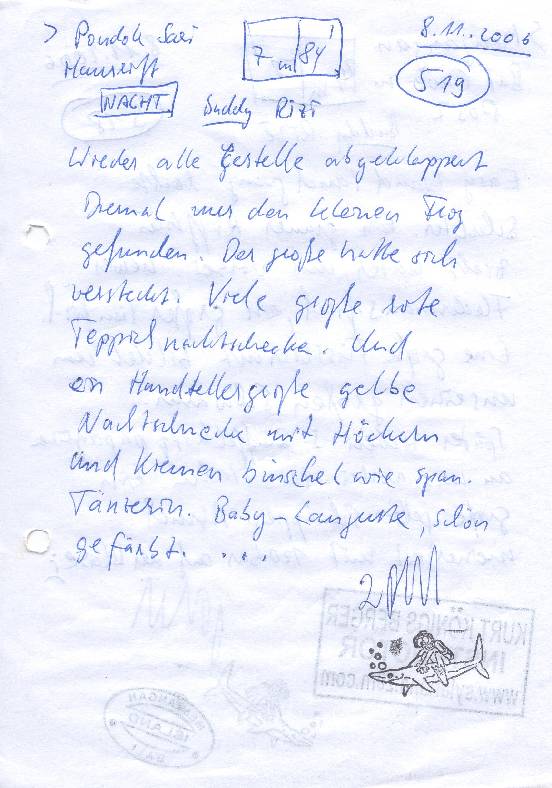 > Pondok Sari
7 m 84'
8.11.2006
Hausriff
519
NACHT
Buddy Rizi
Wieder alle Gestelle abgeklappert
Diemal nur den kleinen Frog
gefunden. Der große hatte sich
versteckt. Viele große rote
Teppichnachtschecke. Und
ein Handtellergroße gelbe
Nachtschnecke mit Höckern
und Kiemenbüschel wie span.
Tänzerin. Baby-Languste, schön
gefärbt. ....
KURT KÖNIGSBERGER